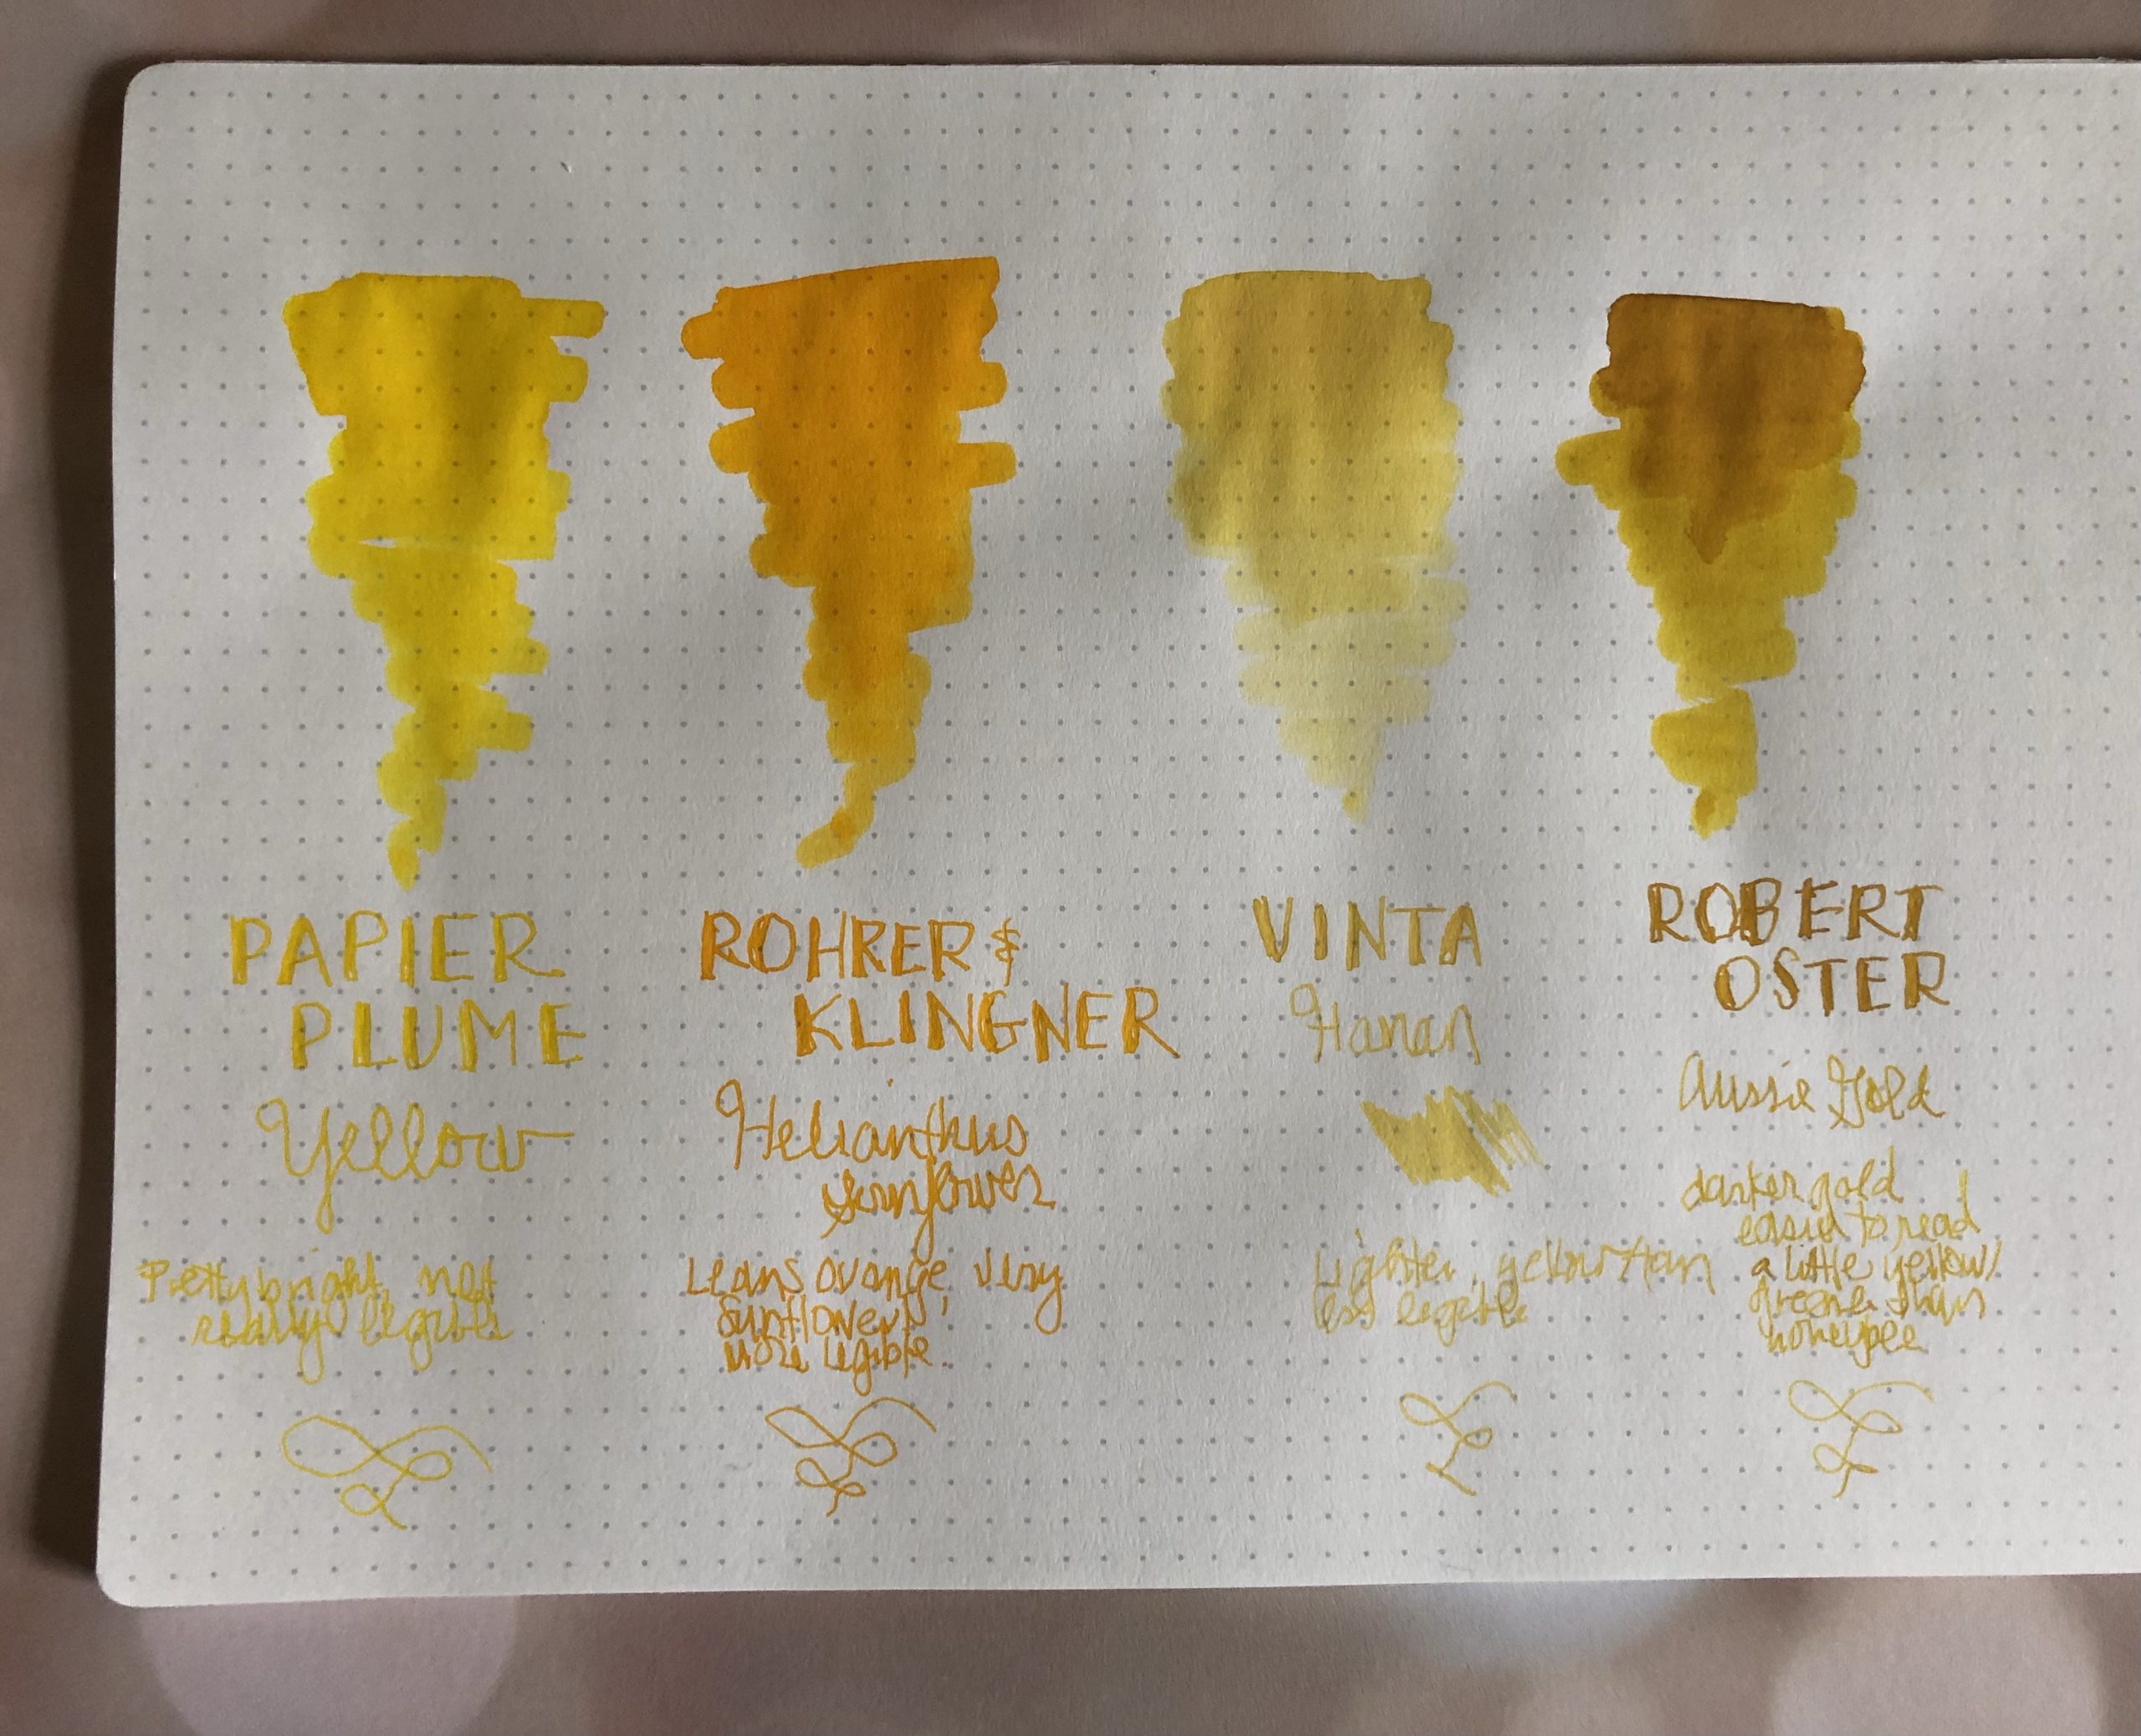 PAPIER
PLUME
Yellow
Pretty bright, not
really legible
ROHRER &
KLINGNER
Helianthus
sunflower
Leans orange, very
sunflowery,
more legible.
VINTA
Hanan
Lighter, yellow/tan
less legible
ROBERT
OSTER
Aussie Gold
darker gold
easier to read
a little yellow/
greener than
honeybee